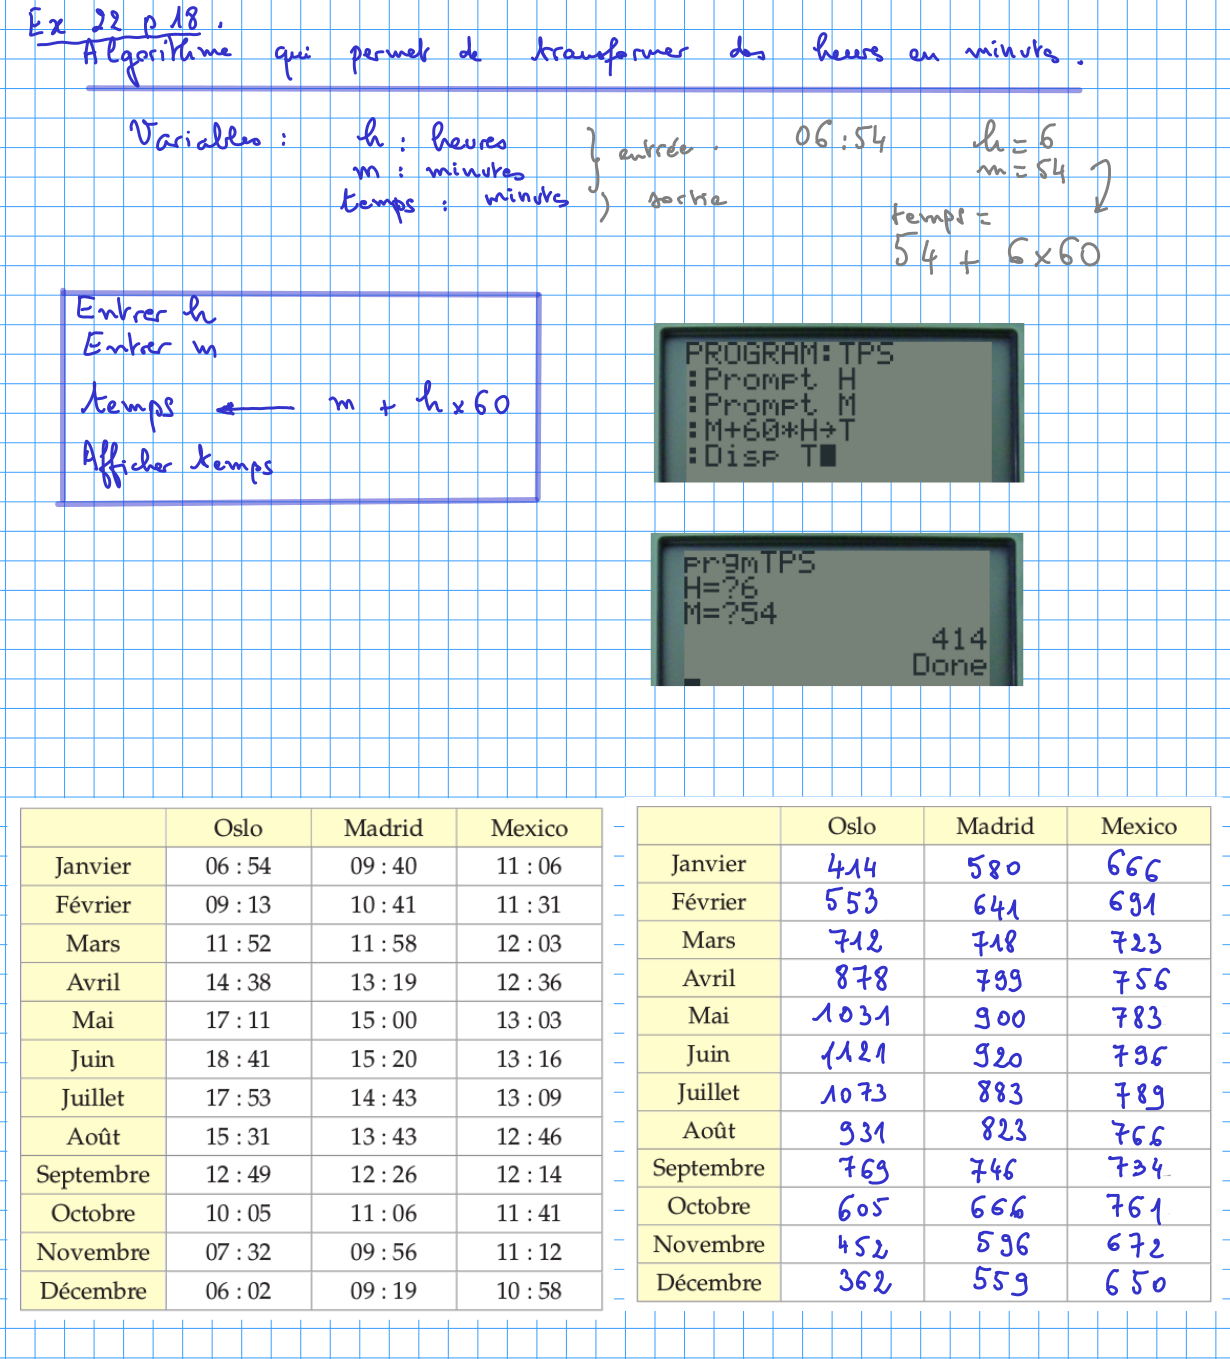 Ex 22 p 18.
Algorithme qui permet de transformer des heures en minutes.
Variables : h : heures
m : minutes
temps : minutes
entrée.
sortie
06:54
h = 6
m = 54
temps =
54 + 6×60
Entrer h
Entrer m
temps ← m + h×60
Afficher temps
PROGRAM:TPS
:Prompt H
:Prompt M
:M+60*H→T
:Disp T
prgmTPS
H=?6
M=?54
414
Done
Oslo Madrid Mexico
Janvier 06 : 54 09 : 40 11 : 06
Février 09 : 13 10 : 41 11 : 31
Mars 11 : 52 11 : 58 12 : 03
Avril 14 : 38 13 : 19 12 : 36
Mai 17 : 11 15 : 00 13 : 03
Juin 18 : 41 15 : 20 13 : 16
Juillet 17 : 53 14 : 43 13 : 09
Août 15 : 31 13 : 43 12 : 46
Septembre 12 : 49 12 : 26 12 : 14
Octobre 10 : 05 11 : 06 11 : 41
Novembre 07 : 32 09 : 56 11 : 12
Décembre 06 : 02 09 : 19 10 : 58
Oslo Madrid Mexico
Janvier 414 580 666
Février 553 641 691
Mars 712 718 723
Avril 878 799 756
Mai 1031 900 783
Juin 1121 920 796
Juillet 1073 883 789
Août 931 823 766
Septembre 769 746 734
Octobre 605 666 761
Novembre 452 596 672
Décembre 362 559 650